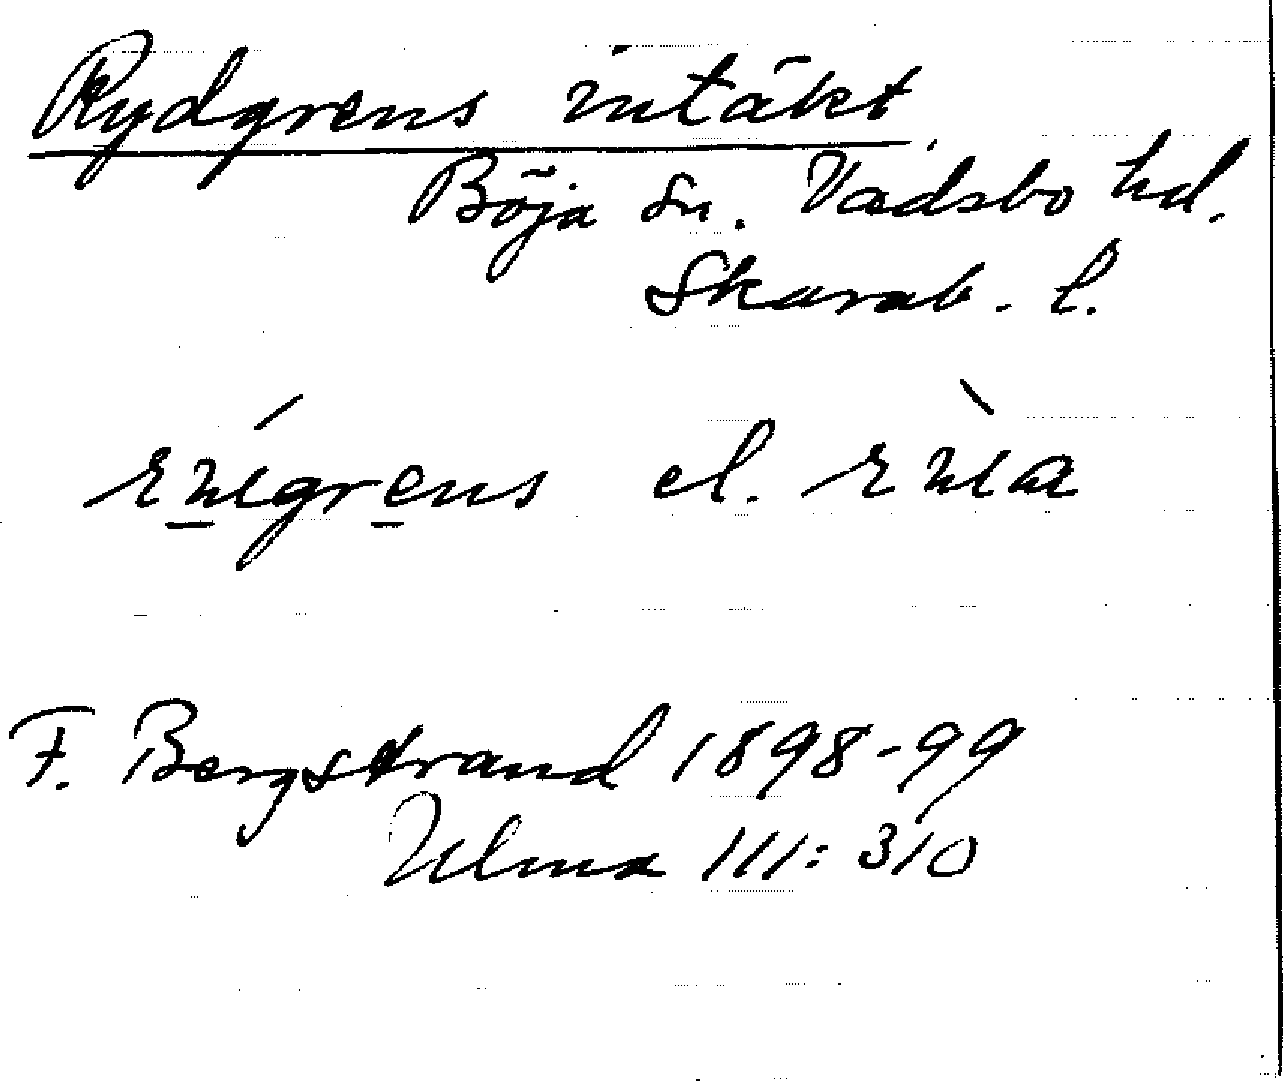 Rydgrens intäkt.
Böja sn. Vadsbo hd.
Skarab. l.
el.
F. Bergstrand 1898-99
Ulma 111:310